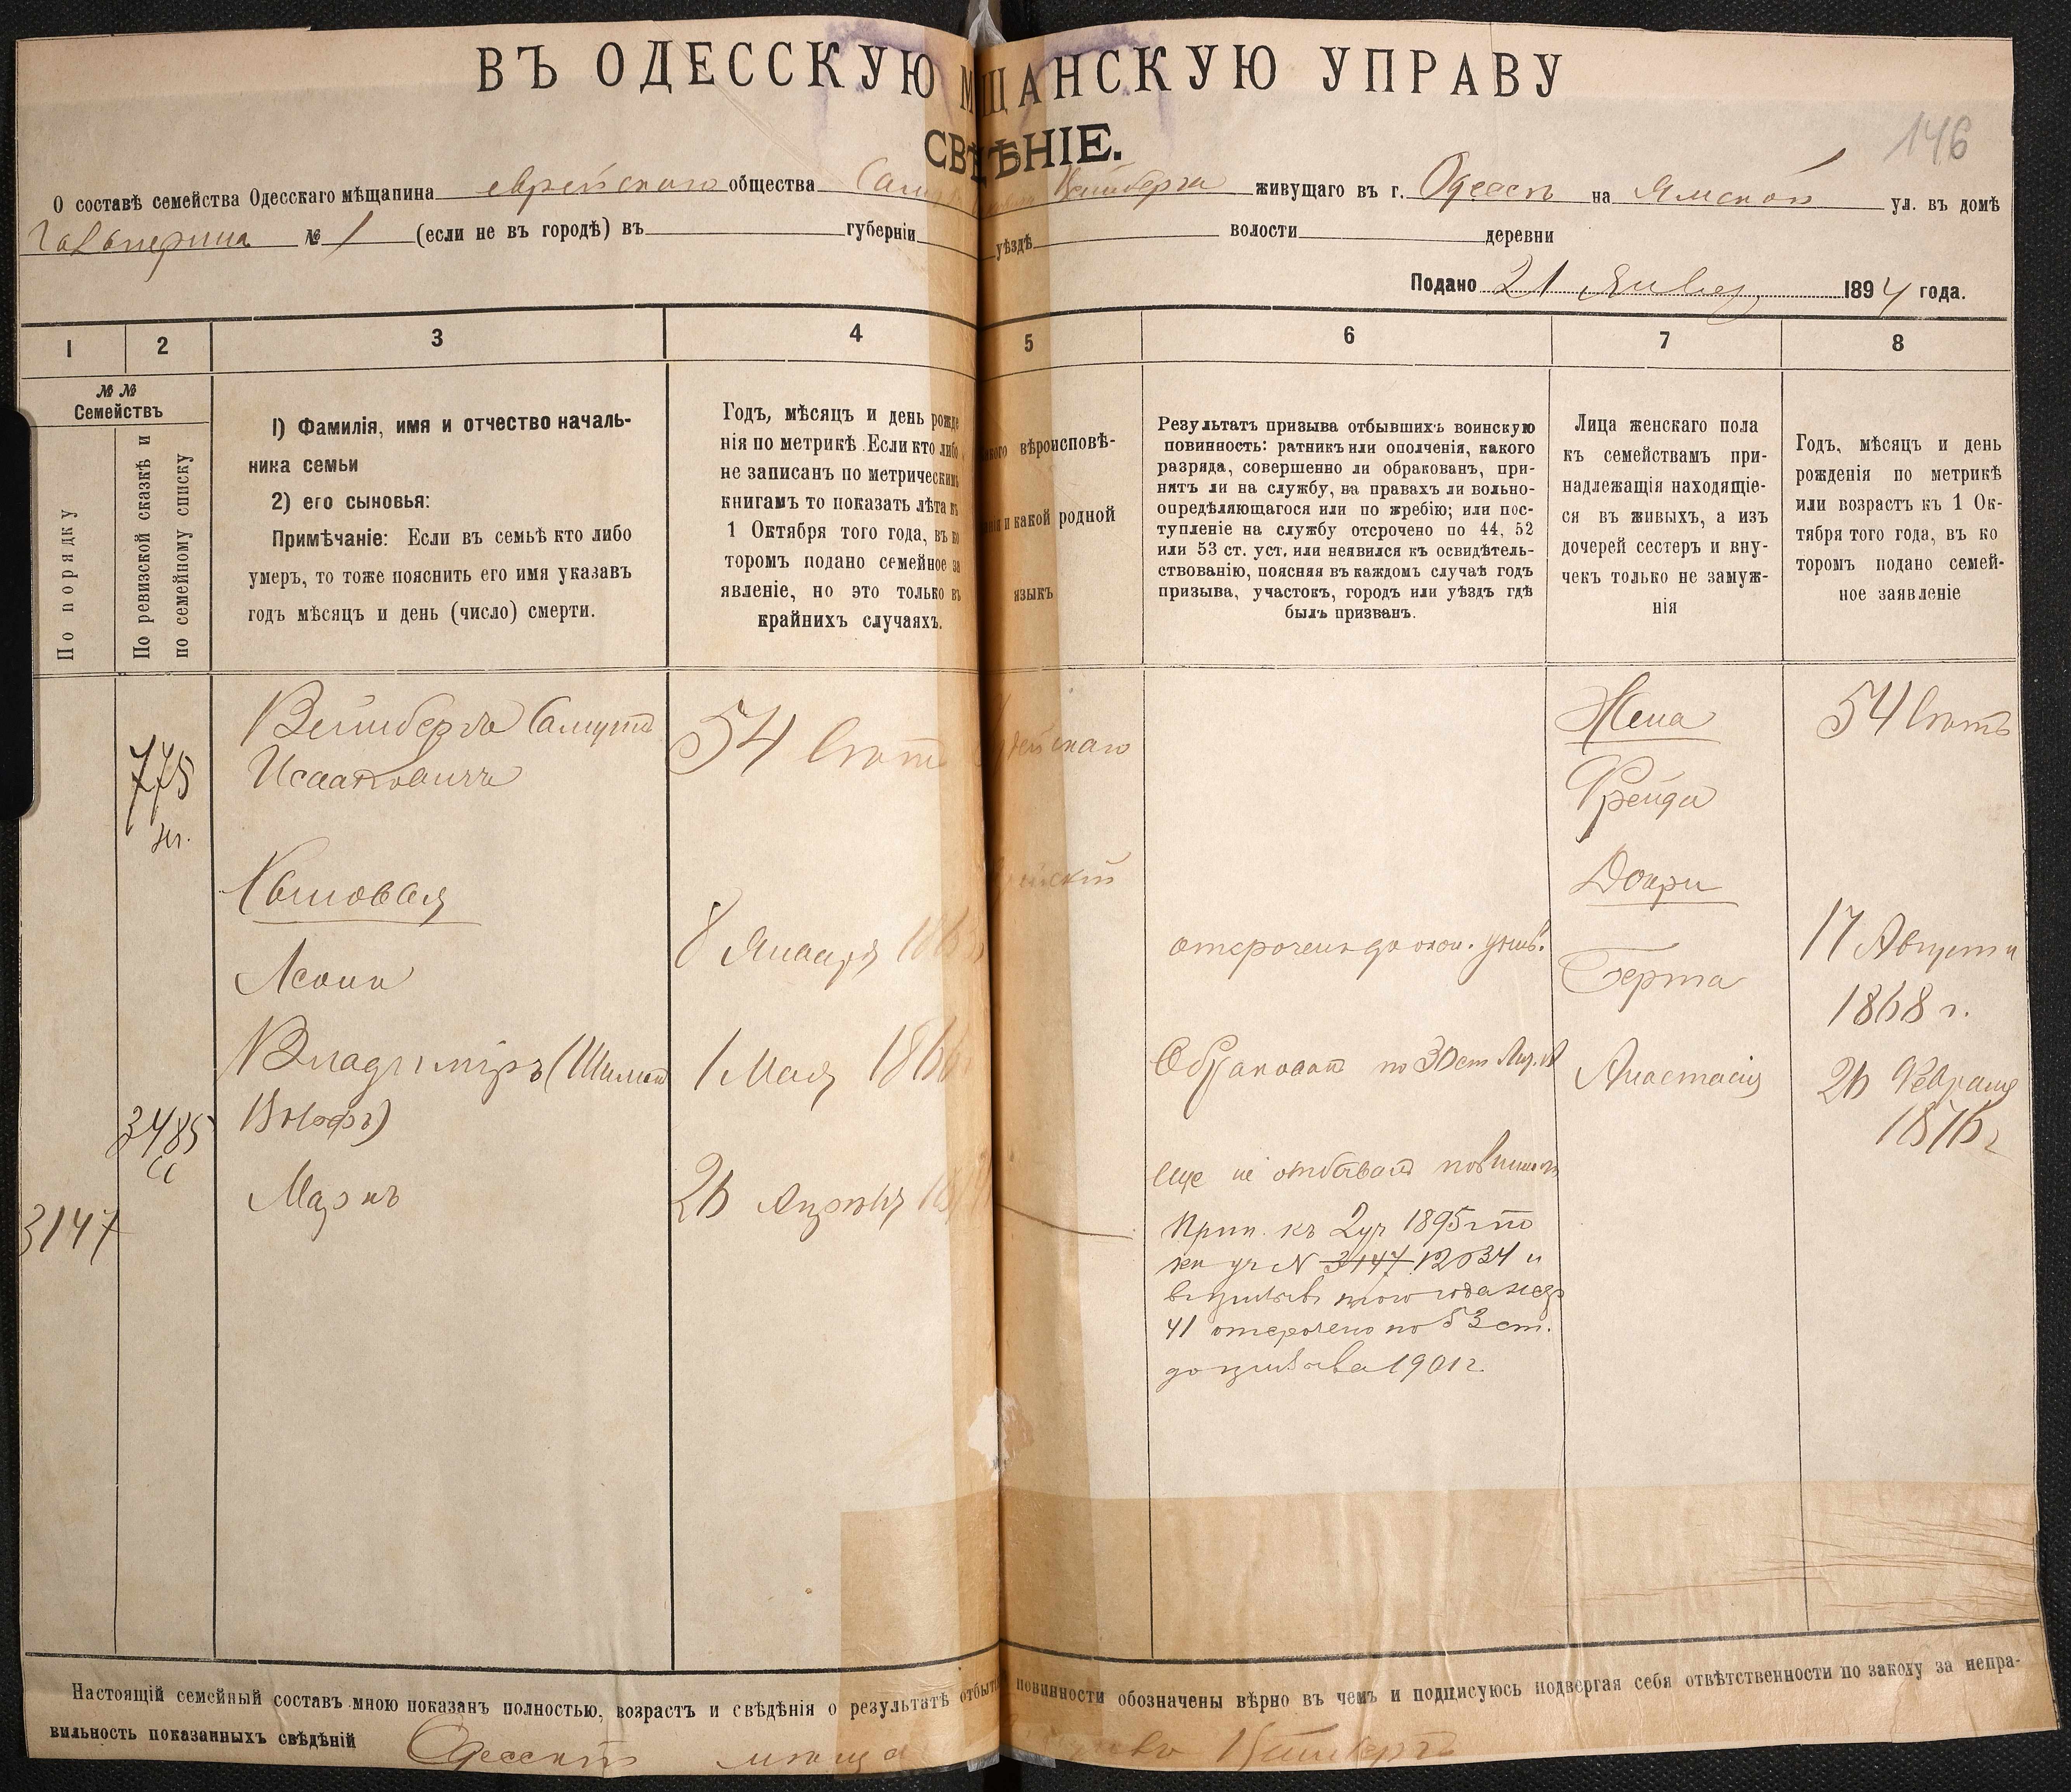 ВЪ ОДЕССКУЮ МЩАНСКУЮ УПРАВУ
СВѢНІЕ.
146
О составѣ семейства Одесскаго мѣщанина еврейскаго общества Вейнберга живущаго въ г. Одессѣ на Ямской ул. въ домѣ
Гальперина № 1 (если не въ городѣ) въ губерніи уѣздѣ волости деревни
Подано 21 Январ 1894 года.
1 2 3 4 5 6 7 8
№ №
Семействъ
По порядку
По ревизской сказкѣ и
по семейному списку
1) Фамилія, имя и отчество началь-
ника семьи
2) его сыновья:
Примѣчаніе: Если въ семьѣ кто либо
умеръ, то тоже пояснить его имя указавъ
годъ мѣсяцъ и день (число) смерти.
Годъ, мѣсяцъ и день рожде
нія по метрикѣ. Если кто либо
не записанъ по метрическимъ
книгамъ то показать лѣта въ
1 Октября того года, въ ко
торомъ подано семейное за
явленіе, но это только въ
крайнихъ случаяхъ.
вѣроисповѣ-
и какой родной
языкъ
Результатъ призыва отбывшихъ воинскую
повинность: ратникъ или ополченія, какого
разряда, совершенно ли обракованъ, при-
нятъ ли на службу, на правахъ ли вольно-
опредѣляющагося или по жребію; или пос-
тупленіе на службу отсрочено по 44, 52
или 53 ст. уст. или неявился къ освидѣтель-
ствованію, поясняя въ каждомъ случаѣ годъ
призыва, участокъ, городъ или уѣздъ гдѣ
былъ призванъ.
Лица женскаго пола
къ семействамъ при-
надлежащія находящіе-
ся въ живыхъ, а изъ
дочерей сестеръ и вну-
чекъ только не замуж-
нія
Годъ, мѣсяцъ и день
рожденія по метрикѣ
или возрастъ къ 1 Ок-
тября того года, въ ко
торомъ подано семей-
ное заявленіе
775
Вейнбергъ Самуилъ
Исааковичъ
54 лѣтъ
Жена
Фрейда
54 лѣтъ
Сыновья
Леонъ
8 Января
отсрочено до окон. унив.
Дочери
Берта
17 Августа
1868 г.
Владиміръ (Шимон
Вольфъ)
1 Мая 1866
Обракован по 30 ст Лит. А
Анастасія
26 Февраля
1876 г
3485
Маркъ
26 Апрѣля
еще не отбывалъ повинность
3147
Прип. къ 2 уч 1895 г по
№ 3147 12634 и
41 отсрочено по 53 ст.
до призыва 1901 г.
Настоящій семейный составъ мною показанъ полностью, возрастъ и свѣдѣнія о результатѣ отбытія повинности обозначены вѣрно въ чемъ и подписуюсь подвергая себя отвѣтственности по закону за непра-
вильность показанныхъ свѣдѣній Одесскій